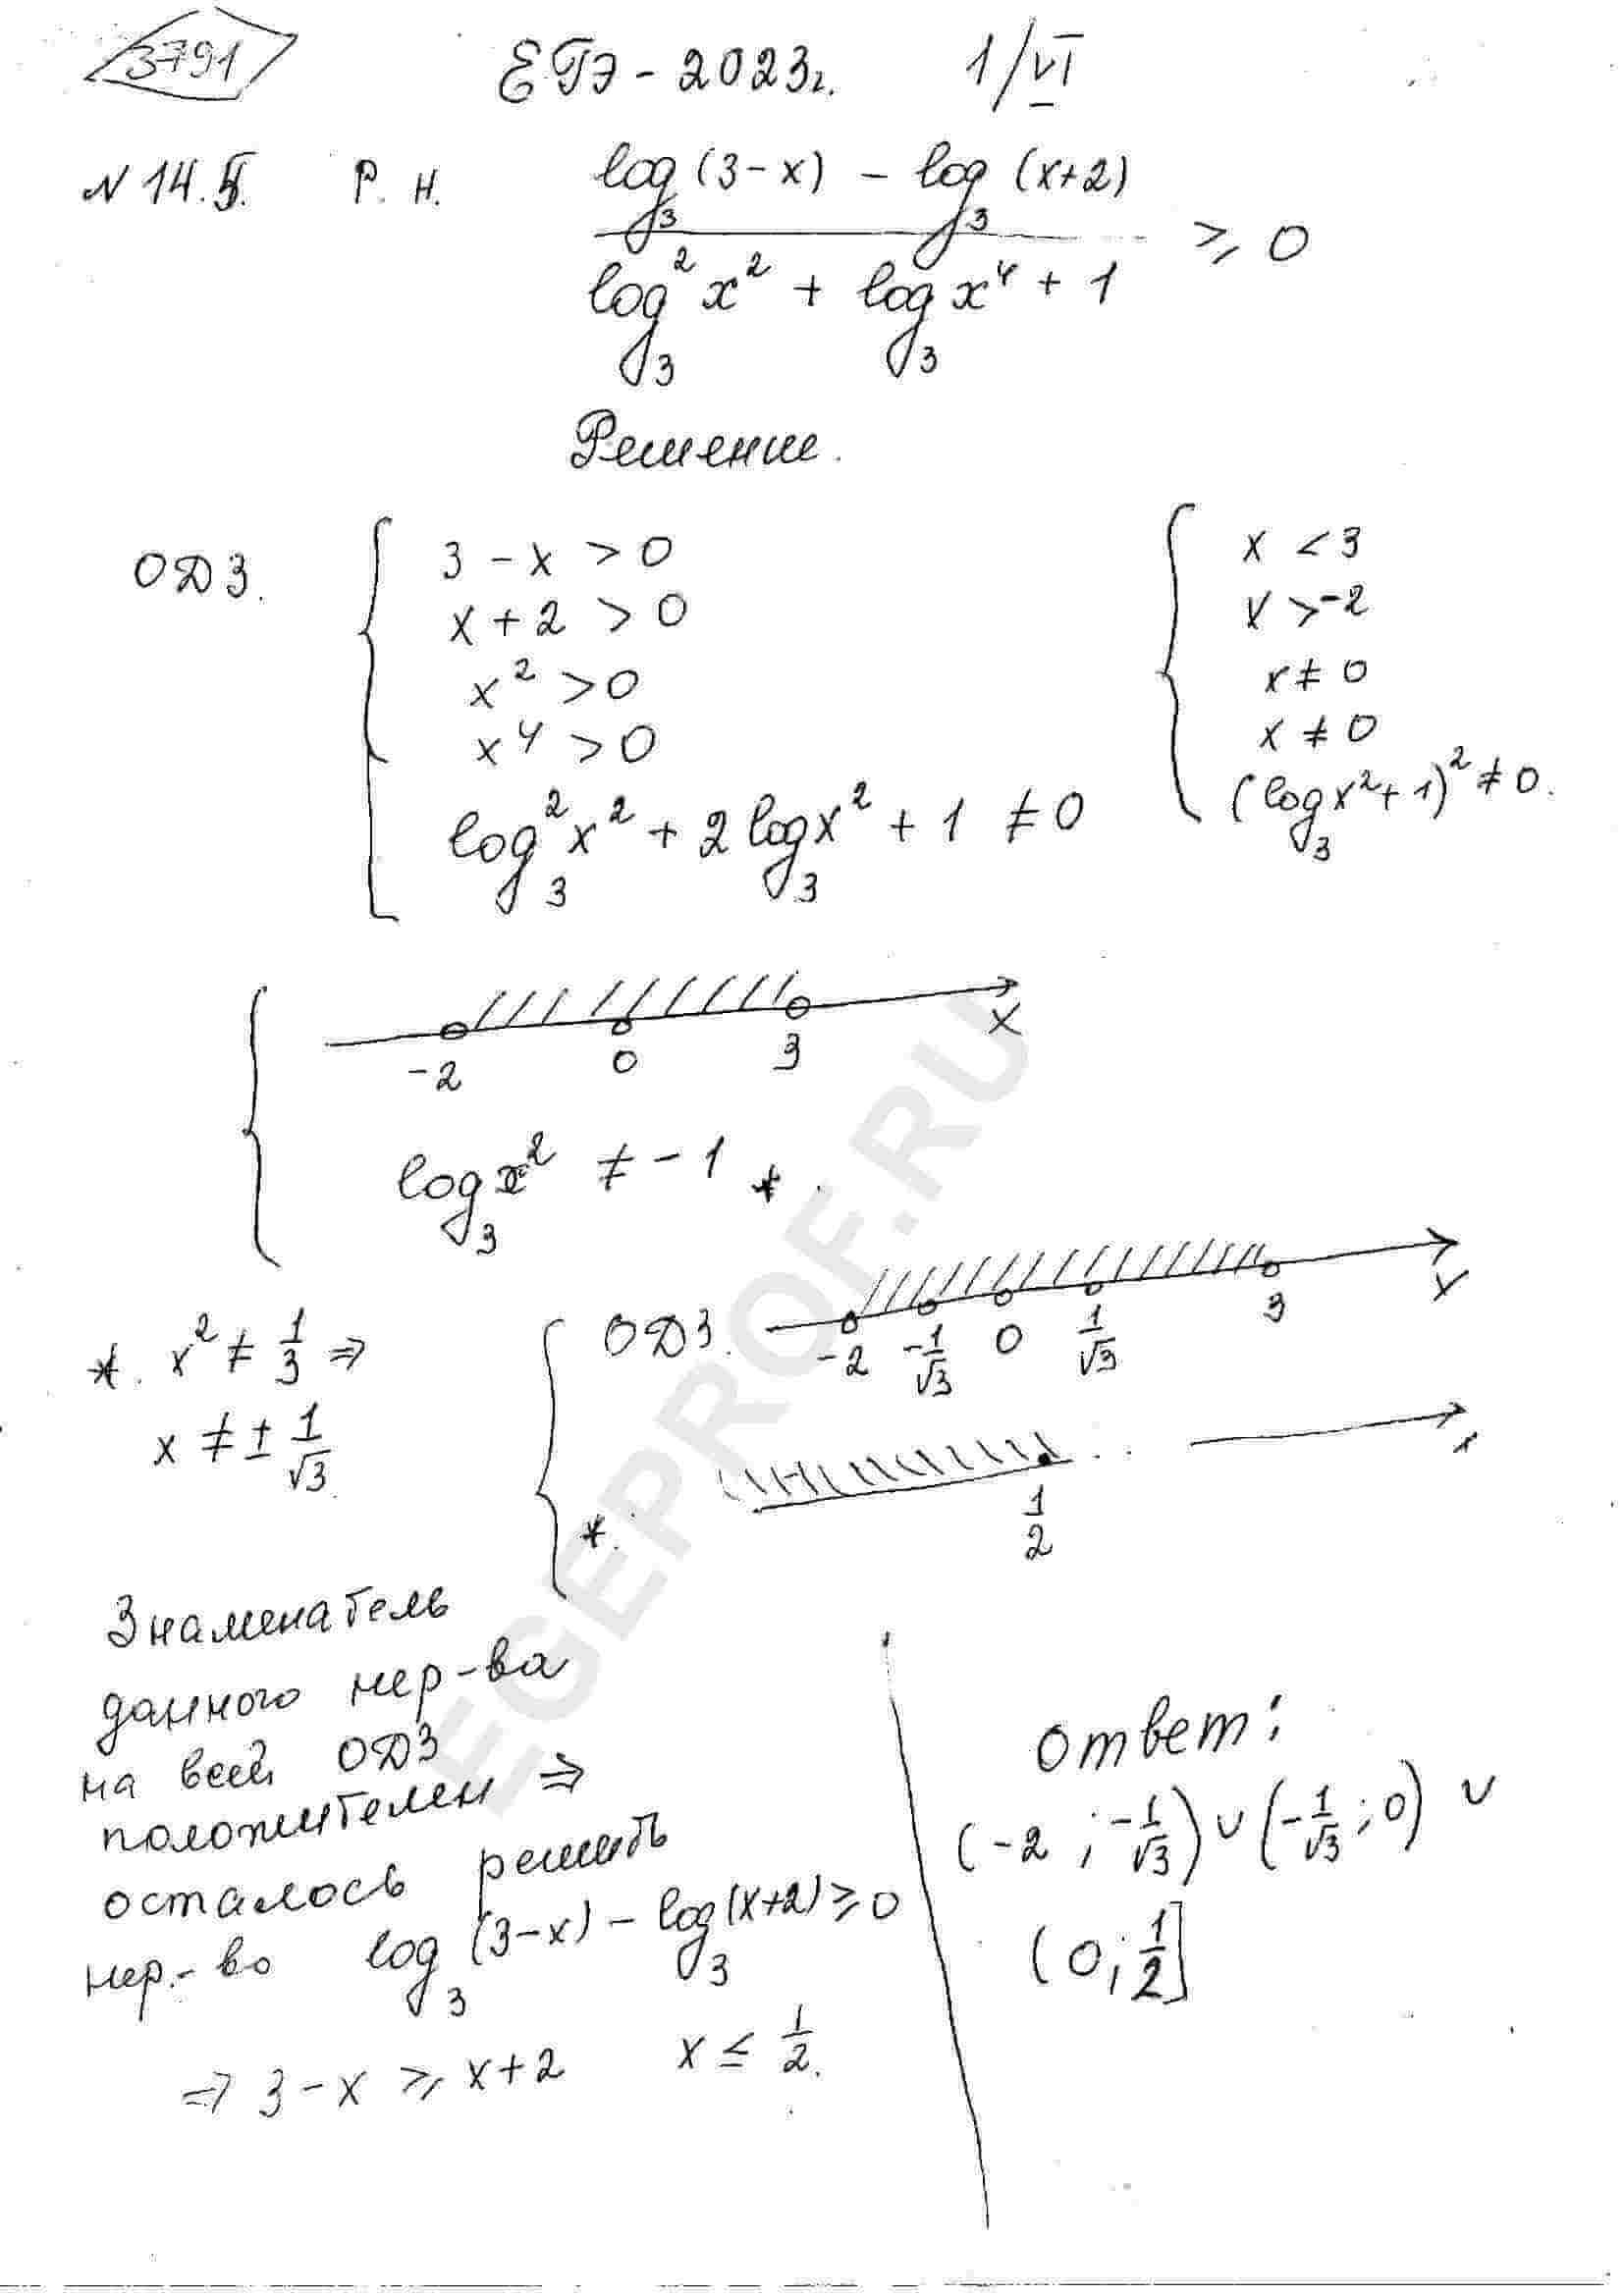 3791
ЕГЭ - 2023г. 1/VI
N 14.5. Р. Н. (log₃(3-x) - log₃(x+2)) / (log₃²x² + log₃x⁴ + 1) ⩾ 0
Решение.
ОДЗ. { 3 - x > 0 { x < 3
x + 2 > 0 x > -2
x² > 0 x ≠ 0
x⁴ > 0 x ≠ 0
log₃²x² + 2log₃x² + 1 ≠ 0 (log₃x² + 1)² ≠ 0.
-2 0 3 x
log₃x² ≠ -1 *.
*. x² ≠ 1/3 ⇒
x ≠ ± 1/√3.
ОДЗ. -2 -1/√3 0 1/√3 3 x
*. 1/2 x
Знаменатель
данного нер-ва
на всей ОДЗ
положителен ⇒
осталось решить
нер.-во log₃(3-x) - log₃(x+2) ⩾ 0
⇒ 3-x ⩾ x+2 x ≤ 1/2.
Ответ:
(-2; -1/√3) ∪ (-1/√3; 0) ∪
(0; 1/2]
EGEPROF.RU